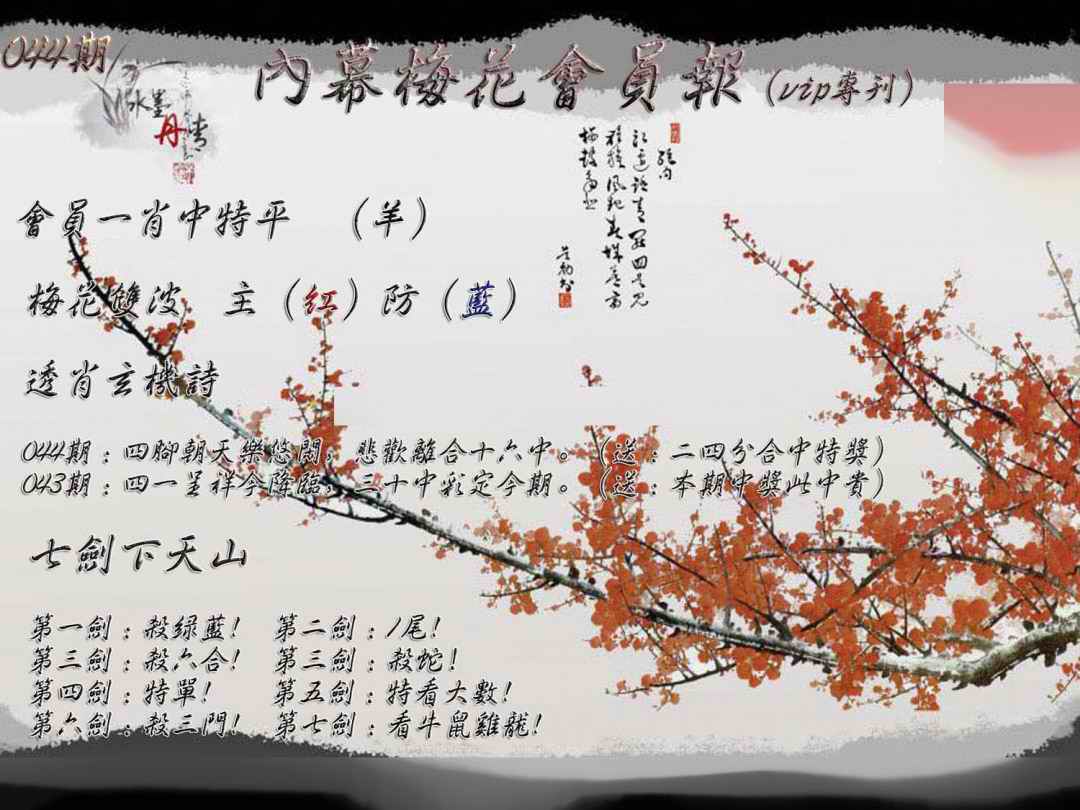 044期
內幕梅花會員報（vip專刊）
水墨
丹青
會員一肖中特平　（羊）
梅花雙波　主（紅）防（藍）
透肖玄機詩
044期：四腳朝天樂悠閑，悲歡離合十六中。（送：二四分合中特獎）
043期：四一呈祥今降臨，三十中彩定今期。（送：本期中獎此中貴）
七劍下天山
第一劍：殺绿藍！　第二劍：1尾！
第三劍：殺六合！　第三劍：殺蛇！
第四劍：特單！　第五劍：特看大數！
第六劍：殺三門！　第七劍：看牛鼠雞龍！